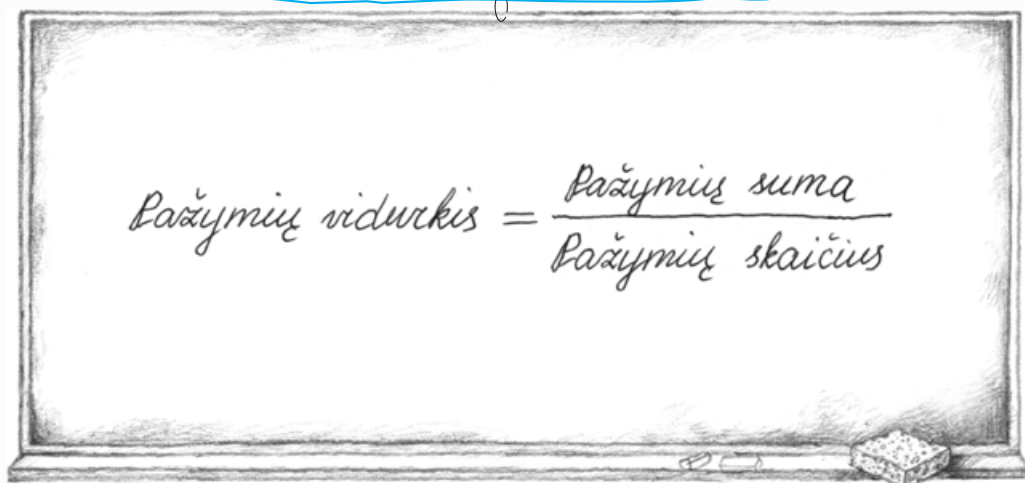 Pažymių vidurkis = Pažymių suma
Pažymių skaičius